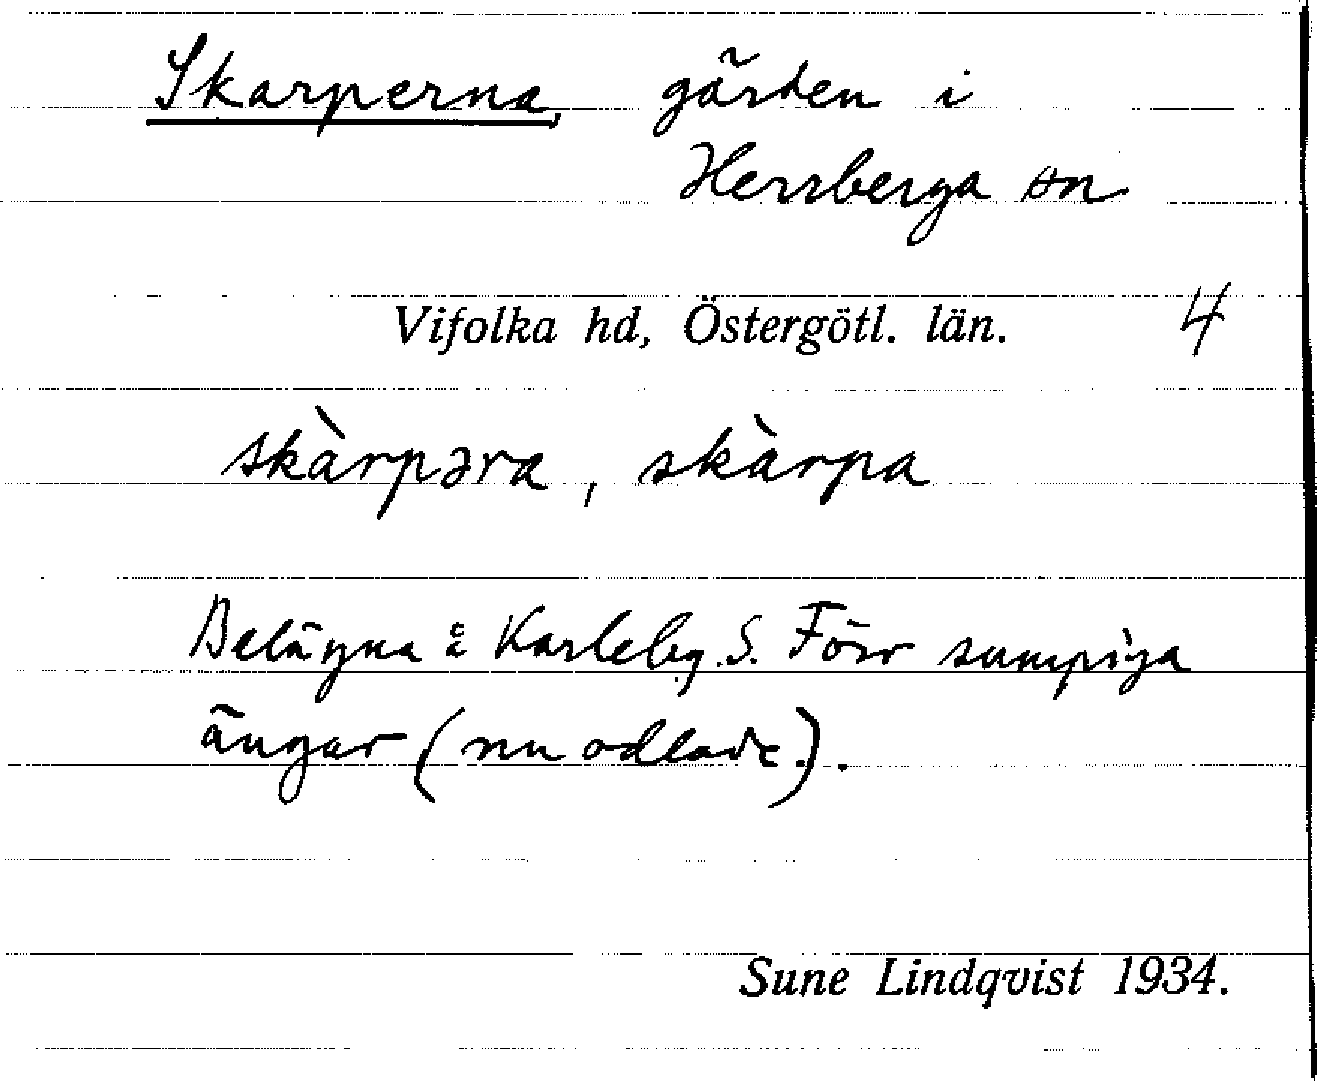 Skarperna, gärden i
Herrberga sn
Vifolka hd, Östergötl. län. 4
skàrpəra, skàrpa
Belägna å Karleby S. Förr sumpiga
ängar (nu odlade.).
Sune Lindqvist 1934.